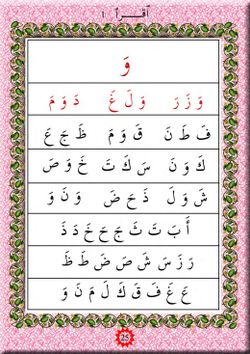 ١ أقرأ
وَ
وَ زَ رَ وَ لَ غَ دَ وَ مَ
فَ طَ نَ قَ وَ مَ ظَ جَ عَ
كَ وَ نَ سَ كَ تَ خَ وَ صَ
شَ وَ لَ ذَ حَ ضَ وَ نَ وَ
أَ بَ تَ ثَ جَ حَ خَ دَ ذَ
رَ زَ سَ شَ صَ ضَ طَ ظَ
عَ غَ فَ قَ كَ لَ مَ نَ وَ
25